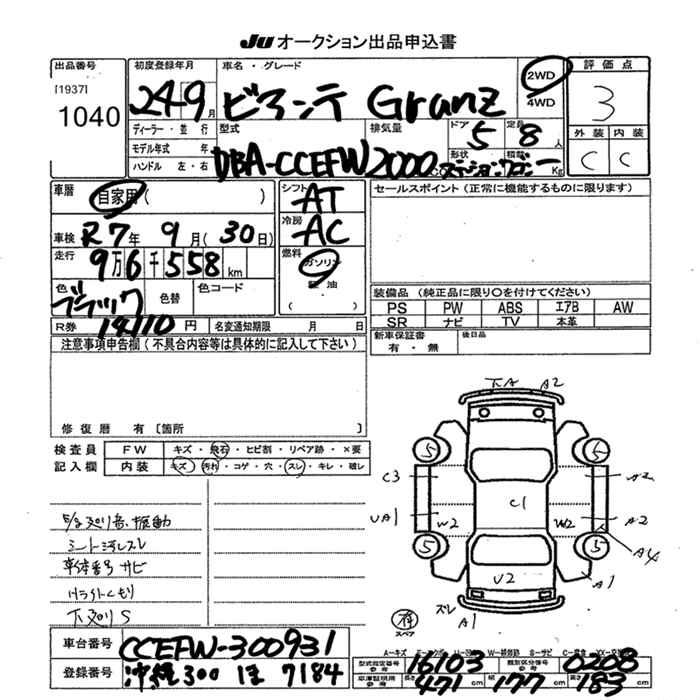 Ju オークション出品申込書
出品番号
[1937]
1040
初度登録年月
24 9 月
車名・グレード
ビアンテ Granz
2WD
4WD
評価点
3
外装 内装
C C
ディーラー・並行
モデル年式 年
ハンドル 左・右
型式
DBA-CCEFW
排気量
2000 CC
ドア 5
定員 8 人
形状
積載
Kg
車歴
自家用 ( )
車検 R7年 9月 (30日)
走行
9万6千558 km
色 ブラック
色替
色コード
シフト AT
冷房 AC
燃料
ガソリン
軽油
( )
セールスポイント (正常に機能するものに限ります)
装備品 (純正品に限り○を付けてください)
PS PW ABS エアB AW
SR ナビ TV 本革
新車保証書
有・無
後日品
R券 14110 円
名変通知期限 月 日
注意事項申告欄 (不具合内容等は具体的に記入して下さい)
修復歴 有 [箇所 ]
検査員
記入欄
FW キズ・飛石・ヒビ割・リペア跡・×要
内装 キズ・汚れ・コゲ・穴・スレ・キレ・破レ
シート汚レスレ
車体番号サビ
下廻りS
下A A2
5 5
C3 A2
C1
UA1 W2 W2 A2
5 5 A4
A1
U2
スレ A1
有
スペア
車台番号 CCEFW-300931
登録番号 沖縄 300 ほ 7184
A-キズ W-補修跡 S-サビ C-腐食
型式指定番号
参考
16103
類別区分番号
参考
0208
車庫証明用
参考
長さ 471 cm 幅 177 cm 高さ 183 cm